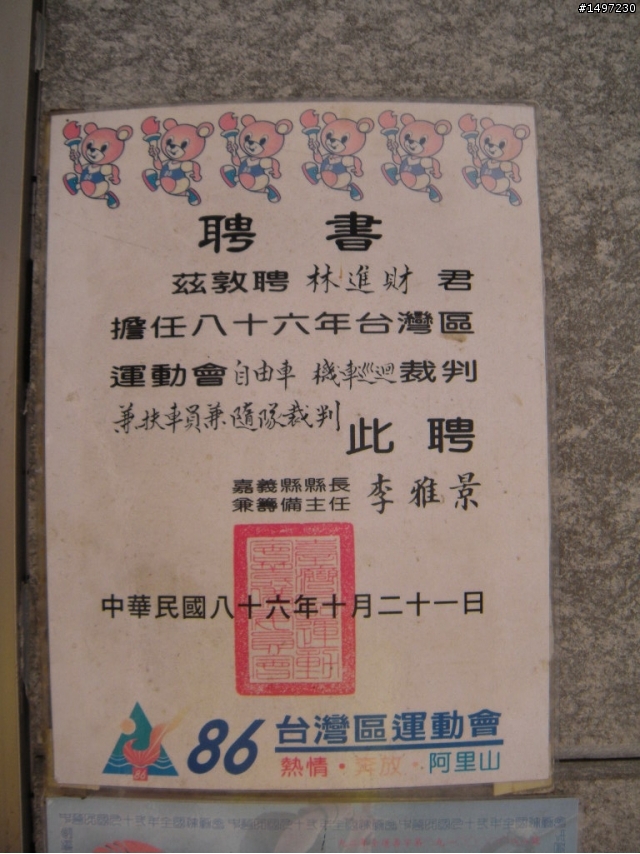 #1497230
聘書
茲敦聘 林進財 君
擔任八十六年台灣區
運動會自由車 機車巡迴裁判
兼扶車員兼隨隊裁判
此聘
嘉義縣縣長
兼籌備主任 李雅景
中華民國八十六年十月二十一日
86 台灣區運動會
熱情·奔放·阿里山
86